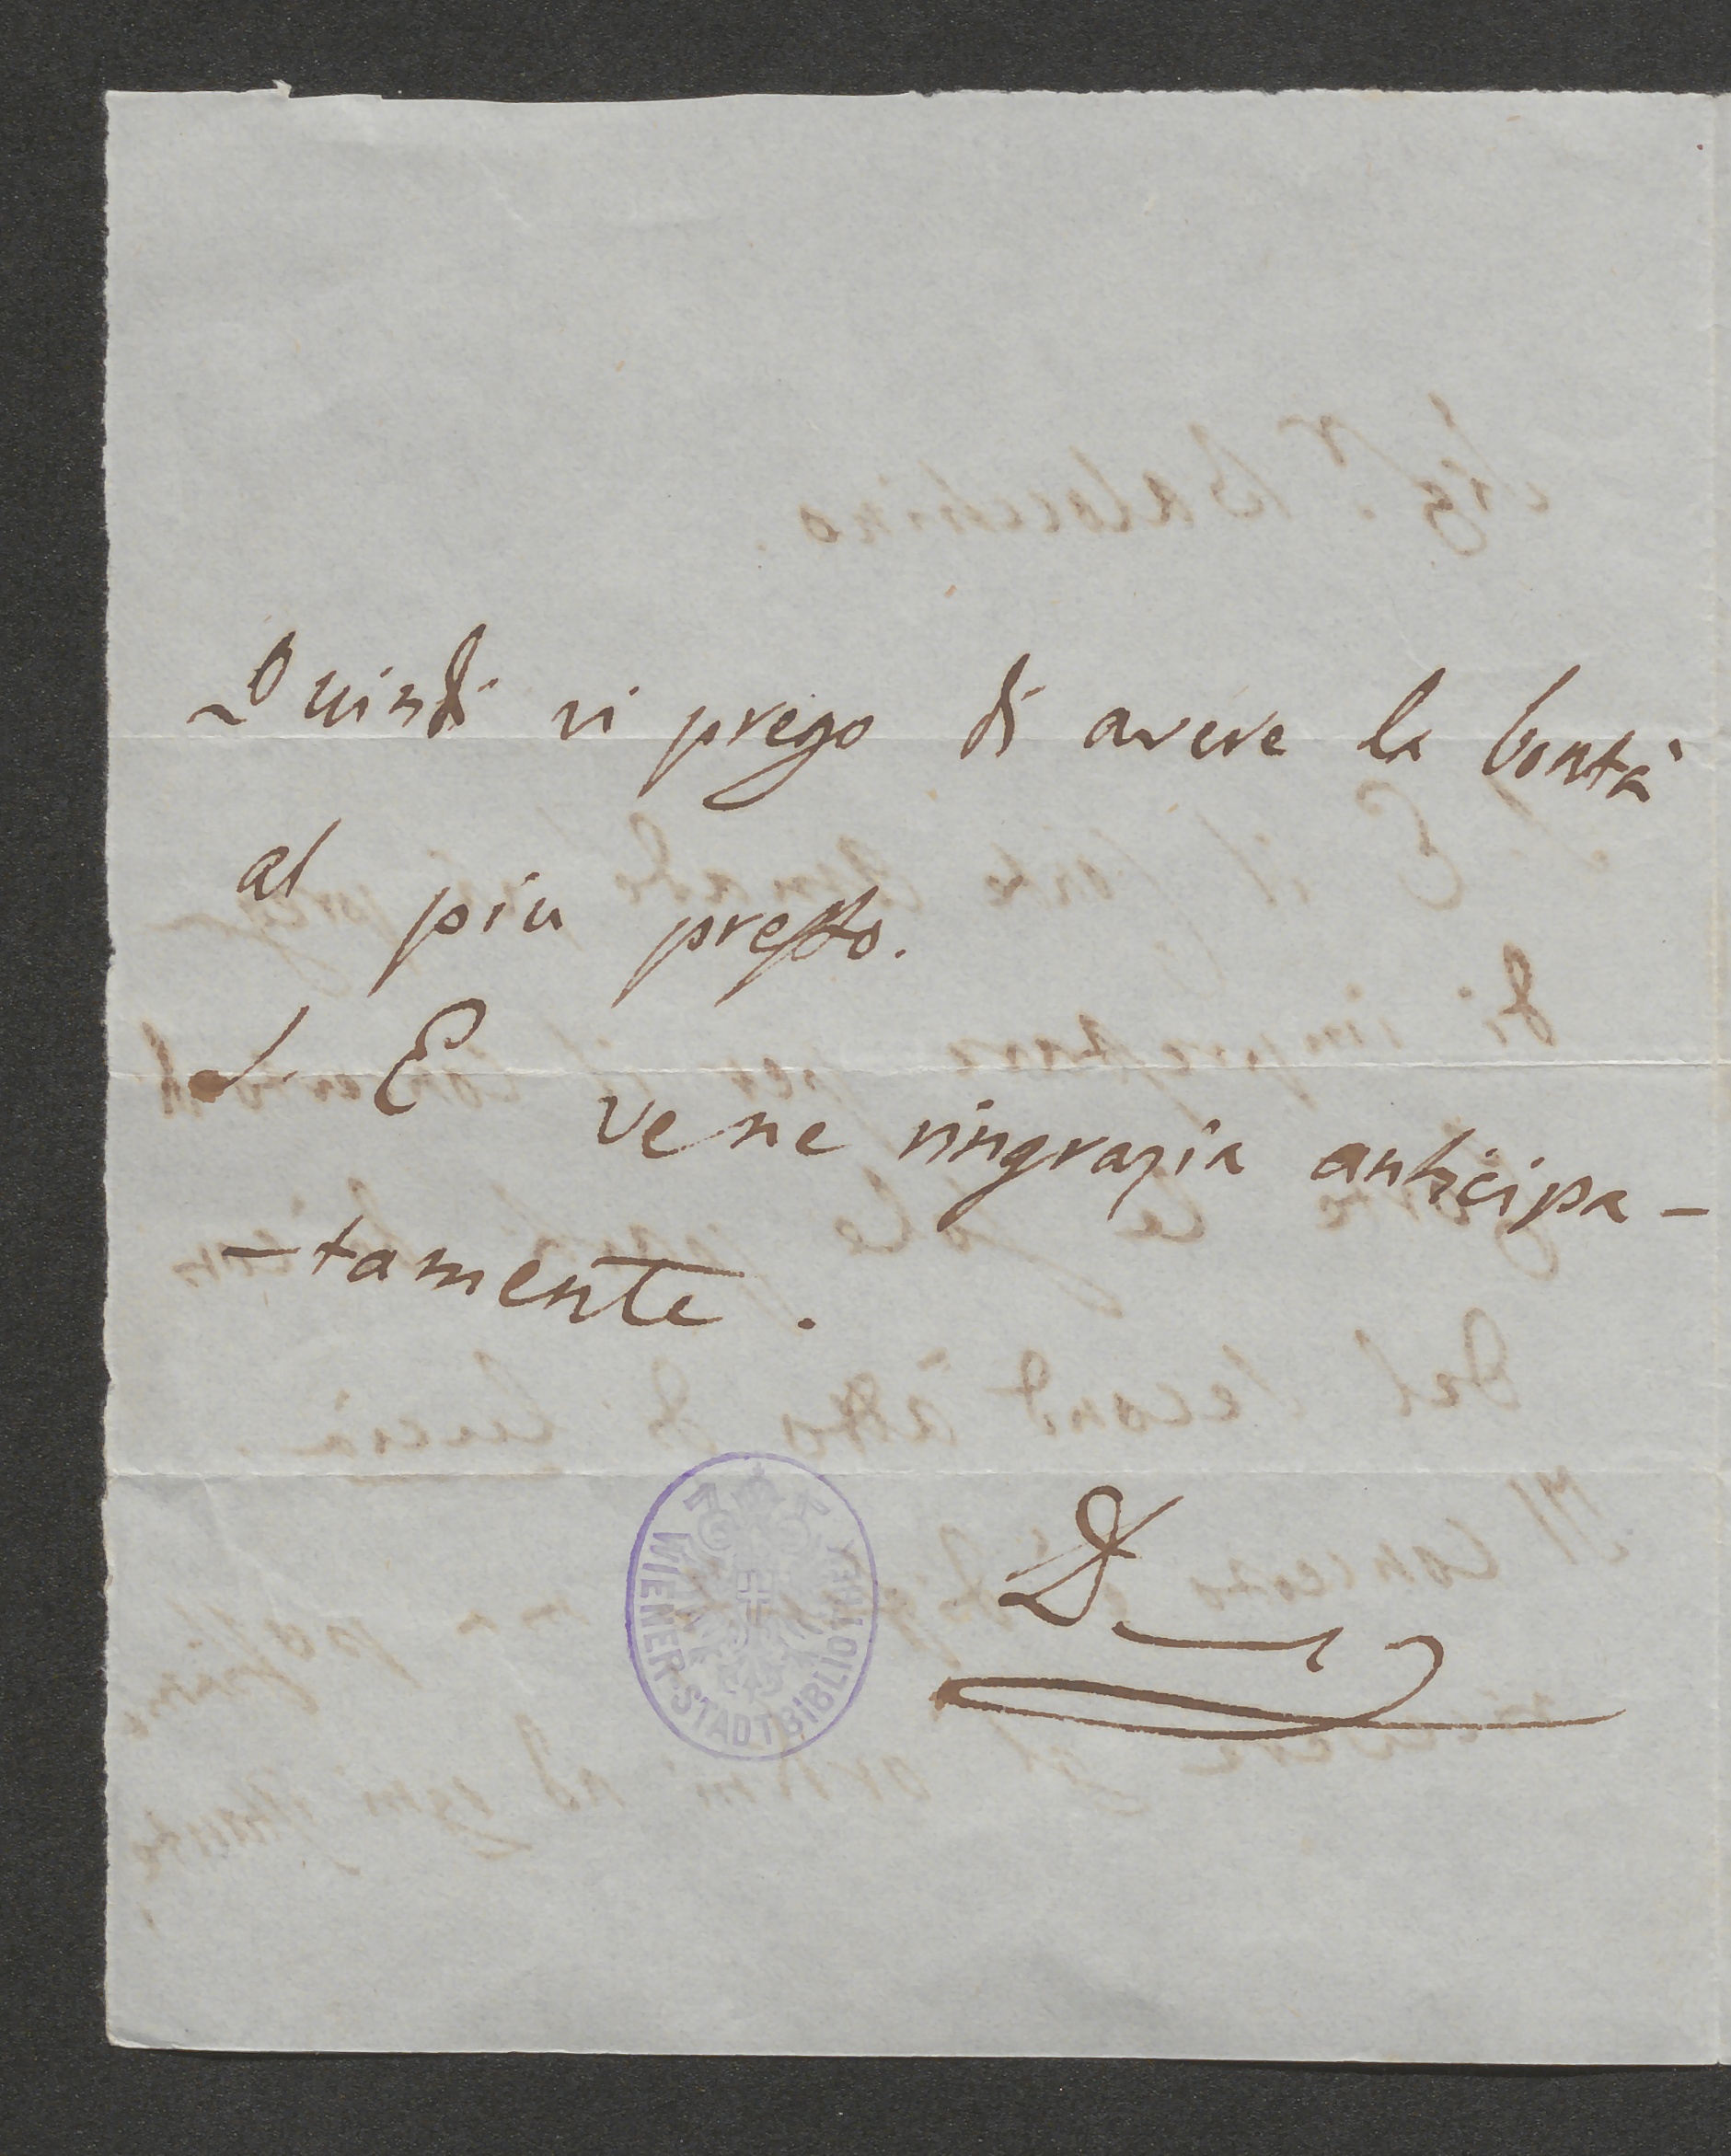 Quindi vi prego di avere la bontà
al piu presto.
S. E. ve ne ringrazia anticipa-
-tamente.
D
WIENER STADTBIBLIOTHEK